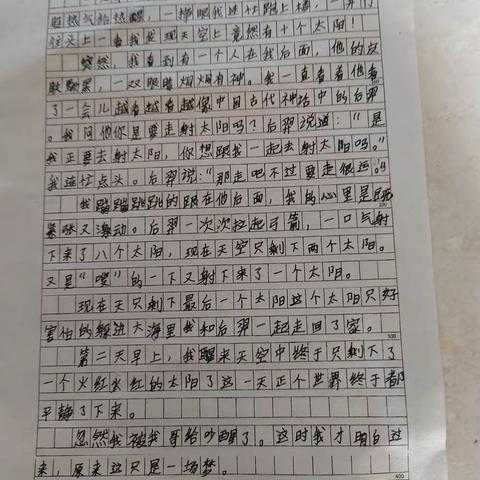 热气给热醒，一睁眼我连忙
往头上一看我发现天空上竟然有十个太阳！
突然，我看到有一个人在我后面，他的皮
肤黝黑，一双眼睛炯炯有神。我一直看着他看
了一会儿越看越看越像中国古代神话中的后羿
。我问他你是要走射太阳吗？后羿说道：“是
我正要去射太阳，你想跟我一起去射太阳吗。”
我连忙点头。后羿说：“那走吧不过要走很远。”
我蹦蹦跳跳的跟在他后面，我的心里是既
紧张又激动。后羿一次次拉起弓箭，一口气射
下来了八个太阳，现在天空只剩下两个太阳。
又是“嗖”的一下又射下来了一个太阳。
现在天只剩下最后一个太阳这个太阳只好
害怕的躲进大海里我和后羿一起走回了家。
300
第二天早上，我醒来天空中终于只剩下了
一个火红火红的太阳了这一天正个世界终于都
平静了下来。
忽然我被我哥给吵醒了。这时我才明白过
来，原来这只是一场梦。
400